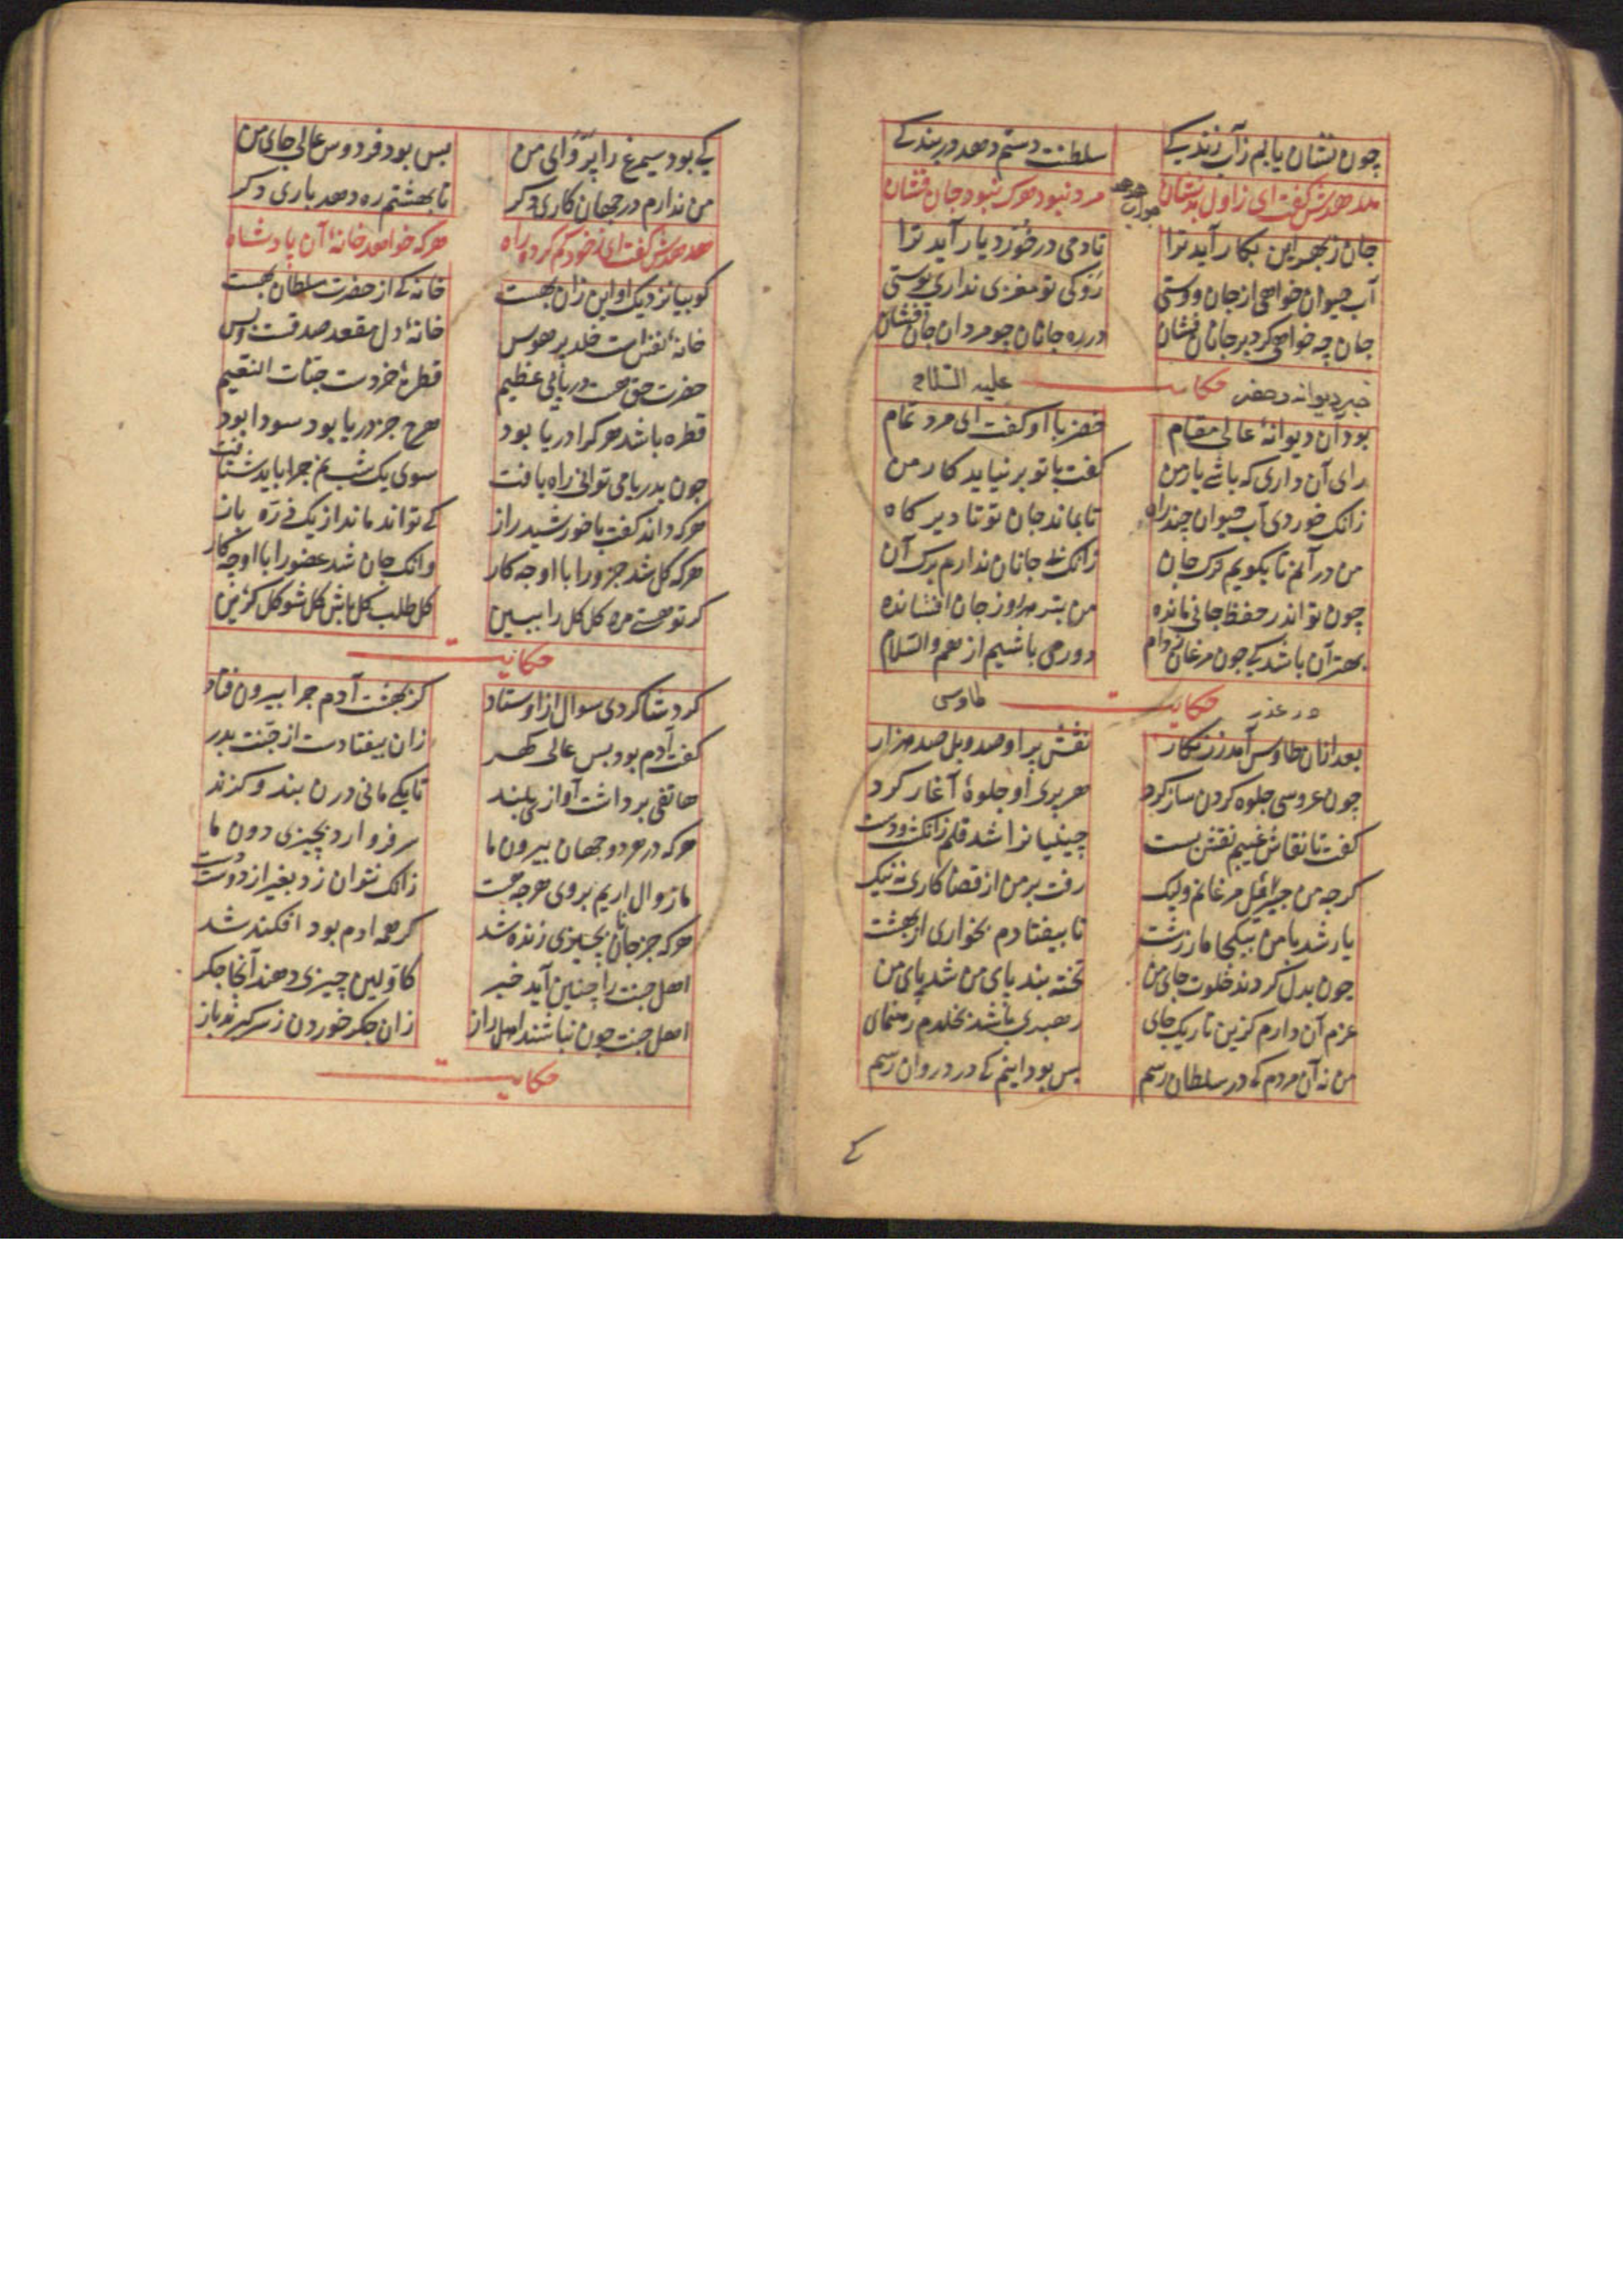 چون نشان یابم ز آب زندگی سلطنت دستم دهد در بندگی
هدهدش گفت ای ز اول بی‌نشان مرد نبود هرک نبود جان فشان
جواب هدهد
جان ز بهر این بکار آید ترا تا دمی در خورد یار آید ترا
آب حیوان خواهی از جان دوستی رو کی تو مغزی نداری پوستی
جان چه خواهی کرد بر جانان فشان در ره جانان چو مردان جان فشان
خبر دیوانه و خضر حکایت علیه السلام
بود آن دیوانهٔ عالی مقام خضر با او گفت ای مرد تمام
رای آن داری که باشی یار من گفت با تو بر نیاید کار من
زانک خوردی آب حیوان چند راه تا بماند جان تو تا دیرگاه
من در آنم تا بگویم ترک جان زانک بی جانان ندارم برگ آن
چون تو اندر حفظ جانی مانده من بتو هر روز جان افشانده
بهتر آن باشد کی چون مرغان ز دام دور می باشیم از هم والسلام
در عذر حکایت طاوسی
بعد ازان طاوس آمد زرنگار نقش پر او صد و بل صد هزار
چون عروسی جلوه کردن ساز کرد هر پری او جلوهٔ آغاز کرد
گفت تا نقاش غیبم نقش بست چینیانرا شد قلم زانگشت و دست
گرچه من جبرئیل مرغانم ولیک رفت بر من از قضا کاری نه نیک
یار شد با من بیکجا مار زشت تا بیفتادم بخواری از بهشت
چون بدل کردند خلوت جای من تخته بند پای من شد پای من
عزم آن دارم کزین تاریک جای رهبری باشد بخلدم رهنمای
من نه آن مردم که در سلطان رسم بس بود اینم کی در دروان رسم
کے
کی بود سیمرغ را پروای من بس بود فردوس عالی جای من
من ندارم در جهان کاری دگر تا بهشتم ره دهد باری دگر
هدهدش گفت ای ز خود گم کرده راه هرکه خواهد خانهٔ آن پادشاه
گو بیا نزدیک او این زان بهست خانه کی از حضرت سلطان بهست
خانهٔ نفس است خلد پر هوس خانهٔ دل مقعد صدقست و بس
حضرت حق هست دریائی عظیم قطرهٔ خردست جنات النعیم
قطره باشد هر کرا دریا بود هرچ جز دریا بود سودا بود
چون بدریا می توانی راه یافت سوی یک شبنم چرا باید شتافت
هرکه داند گفت با خورشید راز کی تواند ماند از یک ذره باز
هرکه کل شد جزو را با او چه کار وانک جان شد عضو را با او چه کار
گر تو هستی مرد کل کل را ببین کل طلب کل باش کل شو کل گزین
حکایت
کرد شاگردی سوال از اوستاد کز بهشت آدم چرا بیرون فتاد
گفت آدم بود بس عالی گهر زان بیفتادست از جنت بدر
هاتفی برداشت آوازی بلند تا یکی مانی درن بند و گزند
هرکه در هر دو جهان بیرون ما سر فرو ارد بچیزی دون ما
ما زوال اریم بر وی هر چه هست زانک نتوان زد بغیر از دوست دست
هرکه جز جانان بچیزی زنده شد گر همه ادم بود افکند شد
اهل جنت را چنین آید خبر کاولین چیزی دهند آنجا جگر
اهل جنت چون نباشند اهل راز زان جگر خوردن ز سر گیرند باز
حکایت